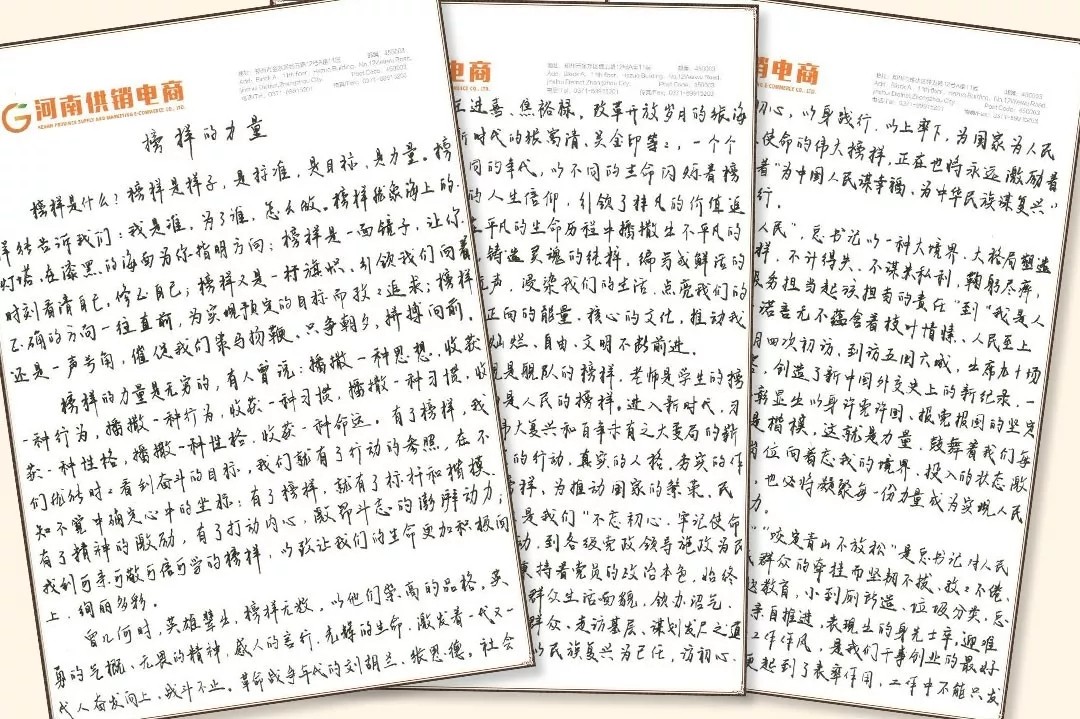 河南供销电商
HENAN PROVINCE SUPPLY AND MARKETING E-COMMERCE CO., LTD.
榜样的力量
榜样是什么？榜样是样子，是标准，是目标，是力量。榜
样能告诉我们：我是谁，为了谁，怎么做。榜样就象海上的
灯塔，在漆黑的海面为你指明方向；榜样是一面镜子，让你
时刻看清自己，修正自己；榜样又是一杆旗帜，引领我们向着
正确的方向一往直前，为实现预定的目标而孜孜追求；榜样
还是一声号角，催促我们策马扬鞭、只争朝夕，拼搏向前。
榜样的力量是无穷的，有人曾说：播撒一种思想，收获
一种行为，播撒一种行为，收获一种习惯，播撒一种习惯，收
获一种性格，播撒一种性格，收获一种命运。有了榜样，我
们能随时看到奋斗的目标，我们就有了行动的参照，在不
知不觉中确定心中的坐标；有了榜样，就有了标杆和楷模，
有了精神的激励，有了打动内心，激昂斗志的澎湃动力；
找到可亲可敬可信可学的榜样，以致让我们的生命更加积极向
上、绚丽多彩。
曾几何时，英雄辈出，榜样无数，以他们崇高的品格、英
勇的气概、无畏的精神，感人的言行，光辉的生命，激发着一代又一
代人奋发向上，战斗不止。革命战争年代的刘胡兰、张思德，社会
电商
王进喜、焦裕禄，改革开放岁月的张海
新时代的张富清、吴金印等等，一个个
同的年代，以不同的生命闪烁着榜
的人生信仰，引领了非凡的价值追
平凡的生命历程中播撒出不平凡的
铸造灵魂的纯粹，编写成鲜活的
声，浸染我们的生活，点亮我们的
正向的能量、核心的文化，推动我
灿烂、自由、文明不断前进。
是舰队的榜样，老师是学生的榜
是人民的榜样。进入新时代，习
伟大复兴和百年未有之大变局的新
的行动，真实的人格，务实的作
榜样，为推动国家的繁荣、民
是我们“不忘初心、牢记使命
动，到各级党政领导施政为民
秉持着党员的政治本色，始终
群众生活面貌，领办浥气、
群众、走访基层、谋划发展之道
以民族复兴为己任，访初心、
电商
初心，以身践行，以上率下，为国家为人民
使命的伟大榜样，正在也将永远激励着
着“为中国人民谋幸福、为中华民族谋复兴”
行。
人民”，总书记以一种大境界、大格局塑造
样，不计得失、不谋求私利，鞠躬尽瘁，
服务担当起该担当的责任”到“我是人
诺言无不蕴含着枝叶情愫、人民至上
月四次初访，到访五国六城，出席九十场
，创造了新中国外交史上的新纪录，一
彰显出以身许党许国、报党报国的坚定
是楷模，这就是力量，鼓舞着我们每
岗位向着忘我的境界、投入的状态激
，也必将凝聚每一份力量成为实现人民
力。
“咬定青山不放松”是总书记对人民
群众的牵挂而坚韧不拔、孜孜不倦、
教育，小到厕所造、垃圾分类，总
亲自推进，表现出的身先士卒，迎难
工作作风，是我们干事创业的最好
更起到了表率作用，工作中不能只发